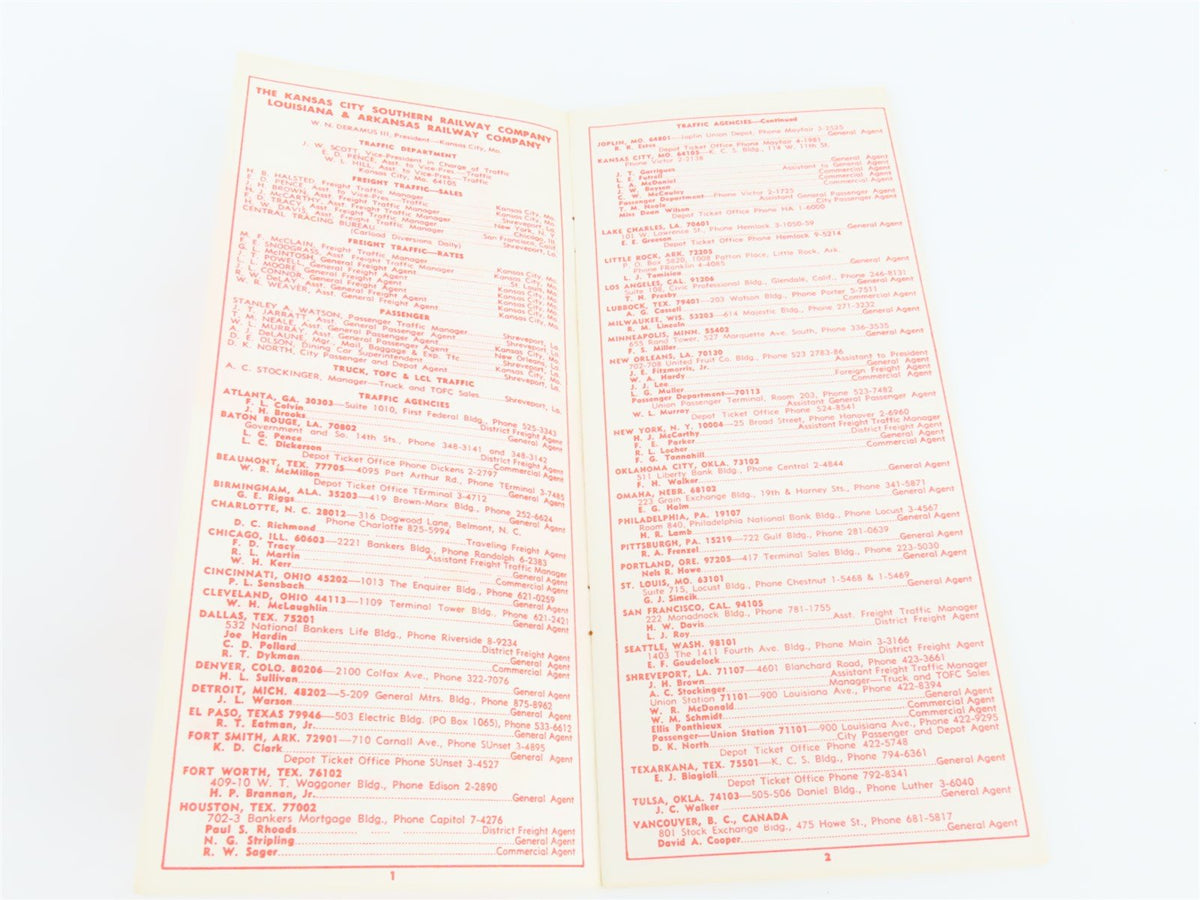 THE KANSAS CITY SOUTHERN RAILWAY COMPANY
LOUISIANA & ARKANSAS RAILWAY COMPANY
W. N. DERAMUS III, President—Kansas City, Mo.
TRAFFIC DEPARTMENT
J. W. SCOTT, Vice-President in Charge of Traffic
E. D. PENCE, Asst. to Vice-Pres.—Traffic
W. L. HILL, Asst. to Vice-Pres.—Traffic
Kansas City, Mo. 64105
FREIGHT TRAFFIC—SALES
H. B. HALSTED, Freight Traffic Manager Kansas City, Mo.
E. D. PENCE, Asst. to Vice-Pres.—Traffic Kansas City, Mo.
J. H. BROWN, Asst. Freight Traffic Manager Shreveport, La.
H. J. McCARTHY, Asst. Freight Traffic Manager New York, N. Y.
F. D. TRACY, Asst. Freight Traffic Manager Chicago, Ill.
H. W. DAVIS, Asst. Freight Traffic Manager San Francisco, Calif.
CENTRAL TRACING BUREAU Shreveport, La.
(Carload Diversions Daily)
FREIGHT TRAFFIC—RATES
M. F. McCLAIN, Freight Traffic Manager Kansas City, Mo.
F. E. SNODGRASS, Asst. Freight Traffic Manager Kansas City, Mo.
G. L. McINTOSH, General Freight Agent St. Louis, Mo.
J. T. POWELL, General Freight Agent Kansas City, Mo.
L. L. MOORE, General Freight Agent Kansas City, Mo.
J. W. CONNOR, General Freight Agent Kansas City, Mo.
R. W. DeLAY, Asst. General Freight Agent Kansas City, Mo.
W. R. WEAVER, Asst. General Freight Agent Kansas City, Mo.
PASSENGER
STANLEY A. WATSON, Passenger Traffic Manager Shreveport, La.
J. T. JARRATT, Asst. General Passenger Agent Shreveport, La.
T. M. NEALE, Asst. General Passenger Agent Kansas City, Mo.
W. L. MURRAY, Asst. General Passenger Agent New Orleans, La.
A. J. DeLAUNE, Mgr., Mail, Baggage & Exp. Tfc. Shreveport, La.
D. E. OLSON, Dining Car Superintendent Kansas City, Mo.
D. K. NORTH, City Passenger and Depot Agent Shreveport, La.
TRUCK, TOFC & LCL TRAFFIC
A. C. STOCKINGER, Manager—Truck and TOFC Sales Shreveport, La.
TRAFFIC AGENCIES
ATLANTA, GA. 30303—Suite 1010, First Federal Bldg., Phone 525-3343
F. L. Colvin District Freight Agent
J. H. Brooks General Agent
BATON ROUGE, LA. 70802
Government and So. 14th Sts., Phone 348-3141 and 348-3142
L. G. Pence District Freight Agent
L. C. Dickerson Commercial Agent
Depot Ticket Office Phone Dickens 2-2797
BEAUMONT, TEX. 77705—4095 Port Arthur Rd., Phone TErminal 3-7485
W. R. McMillon General Agent
Depot Ticket Office TErminal 3-4712
BIRMINGHAM, ALA. 35203—419 Brown-Marx Bldg., Phone 252-6624
G. E. Riggs General Agent
CHARLOTTE, N. C. 28012—316 Dogwood Lane, Belmont, N. C.
Phone Charlotte 825-5994
D. C. Richmond Traveling Freight Agent
CHICAGO, ILL. 60603—2221 Bankers Bldg., Phone Randolph 6-2383
F. D. Tracy Assistant Freight Traffic Manager
R. L. Martin General Agent
W. H. Kerr Commercial Agent
CINCINNATI, OHIO 45202—1013 The Enquirer Bldg., Phone 621-0259
P. L. Sensbach General Agent
CLEVELAND, OHIO 44113—1109 Terminal Tower Bldg., Phone 621-2421
W. H. McLaughlin General Agent
DALLAS, TEX. 75201
532 National Bankers Life Bldg., Phone Riverside 8-9234
Joe Hardin District Freight Agent
C. D. Pollard General Agent
R. T. Dykman Commercial Agent
DENVER, COLO. 80206—2100 Colfax Ave., Phone 322-7076
H. L. Sullivan General Agent
DETROIT, MICH. 48202—5-209 General Mtrs. Bldg., Phone 875-8962
J. L. Warson General Agent
EL PASO, TEXAS 79946—503 Electric Bldg. (PO Box 1065), Phone 533-6612
R. T. Eatman, Jr. General Agent
FORT SMITH, ARK. 72901—710 Carnall Ave., Phone SUnset 3-4895
K. D. Clark General Agent
Depot Ticket Office Phone SUnset 3-4527
FORT WORTH, TEX. 76102
409-10 W. T. Waggoner Bldg., Phone Edison 2-2890
H. P. Brannan, Jr. General Agent
HOUSTON, TEX. 77002
702-3 Bankers Mortgage Bldg., Phone Capitol 7-4276
Paul S. Rhoads District Freight Agent
N. G. Stripling General Agent
R. W. Sager Commercial Agent
1
TRAFFIC AGENCIES—Continued
JOPLIN, MO. 64801—Joplin Union Depot, Phone Mayfair 3-2525
R. R. Estes General Agent
Depot Ticket Office Phone Mayfair 4-1981
KANSAS CITY, MO. 64105—K. C. S. Bldg., 114 W. 11th St.
Phone Victor 2-2138
J. T. Garrigues General Agent
L. E. Futrell Assistant to General Agent
L. A. McDaniel Commercial Agent
J. W. Boysen Commercial Agent
C. W. McCauley Commercial Agent
Passenger Department—Phone Victor 2-1725
T. M. Neale Assistant General Passenger Agent
Miss Doen Wilson City Passenger Agent
Depot Ticket Office Phone HA 1-6000
LAKE CHARLES, LA. 70601
101 W. Lawrence St., Phone Hemlock 3-1050-59
E. E. Greeson General Agent
Depot Ticket Office Phone Hemlock 9-5214
LITTLE ROCK, ARK. 72205
P. O. Box 5820, 1008 Patton Place, Little Rock, Ark.
Phone FRanklin 4-4085
L. J. Tomisica General Agent
LOS ANGELES, CAL. 91206
Suite 108, Civic Professional Bldg., Glendale, Calif., Phone 246-8131
T. N. Presby General Agent
LUBBOCK, TEX. 79401—203 Watson Bldg., Phone Porter 5-7511
A. G. Cassell Commercial Agent
MILWAUKEE, WIS. 53203—614 Majestic Bldg., Phone 271-3232
R. M. Lincoln General Agent
MINNEAPOLIS, MINN. 55402
655 Rand Tower, 527 Marquette Ave. South, Phone 336-3535
F. S. Miller General Agent
NEW ORLEANS, LA. 70120
702-708 United Fruit Co. Bldg., Phone 523 2783-86
J. E. Fitzmorris, Jr. Assistant to President
W. A. Hardy General Agent
J. J. Lee Foreign Freight Agent
L. G. Muller Commercial Agent
Passenger Department—70113
Union Passenger Terminal, Room 203, Phone 523-7482
W. L. Murray Assistant General Passenger Agent
Depot Ticket Office Phone 524-8541
NEW YORK, N. Y. 10004—25 Broad Street, Phone Hanover 2-6960
H. J. McCarthy Assistant Freight Traffic Manager
F. E. Parker District Freight Agent
R. L. Locher General Agent
F. G. Tannahill Commercial Agent
OKLAHOMA CITY, OKLA. 73102
511 Liberty Bank Bldg., Phone Central 2-4844
F. H. Walker General Agent
OMAHA, NEBR. 68102
223 Grain Exchange Bldg., 19th & Harney Sts., Phone 341-5871
E. G. Holm General Agent
PHILADELPHIA, PA. 19107
Room 840, Philadelphia National Bank Bldg., Phone Locust 3-4567
H. R. Lamb General Agent
PITTSBURGH, PA. 15219—722 Gulf Bldg., Phone 281-0639
R. A. Frenzel General Agent
PORTLAND, ORE. 97205—417 Terminal Sales Bldg., Phone 223-5030
Nels R. Howe General Agent
ST. LOUIS, MO. 63101
Suite 715, Locust Bldg., Phone Chestnut 1-5468 & 1-5469
G. J. Simcik General Agent
SAN FRANCISCO, CAL. 94105
222 Monadnock Bldg., Phone 781-1755
H. W. Davis Asst. Freight Traffic Manager
L. J. Roy District Freight Agent
SEATTLE, WASH. 98101
1403 The 1411 Fourth Ave. Bldg., Phone Main 3-3166
E. F. Goudelock District Freight Agent
SHREVEPORT, LA. 71107—4601 Blanchard Road, Phone 423-3661
J. H. Brown Assistant Freight Traffic Manager
A. C. Stockinger Manager—Truck and TOFC Sales
Union Station 71101—900 Louisiana Ave., Phone 422-8394
W. R. McDonald General Agent
W. M. Schmidt Commercial Agent
Ellis Ponthieux Commercial Agent
Passenger—Union Station 71101—900 Louisiana Ave., Phone 422-9295
D. K. North City Passenger and Depot Agent
Depot Ticket Office Phone 422-5748
TEXARKANA, TEX. 75501—K. C. S. Bldg., Phone 794-6361
E. J. Biagioli General Agent
Depot Ticket Office Phone 792-8341
TULSA, OKLA. 74103—505-506 Daniel Bldg., Phone Luther 3-6040
J. C. Walker General Agent
VANCOUVER, B. C., CANADA
801 Stock Exchange Bldg., 475 Howe St., Phone 681-5817
David A. Cooper General Agent
2